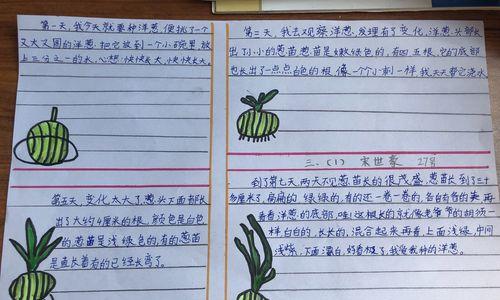 第一天,我今天就要种洋葱,便挑了一个
又大又圆的洋葱.把它放到一个小碗里,放
上三分之一的水,心想:快快长大,快快长大。
第三天,我去观察洋葱.发现有了变化,洋葱头部长
出了小小的葱苗.葱苗是嫩绿绿色的,有四五根,它的底部
也长出了一点点白色的根,像一个个小刺一样.我天天替它浇水
三、(1) 宋世豪 27号
第五天,变化太大了,葱头下面都长
出了大约4厘米的根,颜色是白色
的葱苗是浅绿色的,有的葱苗
是直长着有的已经长弯了。
到了第七天,两天不见葱苗长的很茂盛,葱苗长到了三十
多厘米了,扁扁的,绿绿的,有的还一卷一卷的,各自有各的美,再
看看洋葱的底部,哇!这根长的就像老爷爷的胡须一
样白白的,长长的,混合起来再看,上面浅绿,中间
浅紫,下面灰白,好看极了,我爱我种的洋葱。